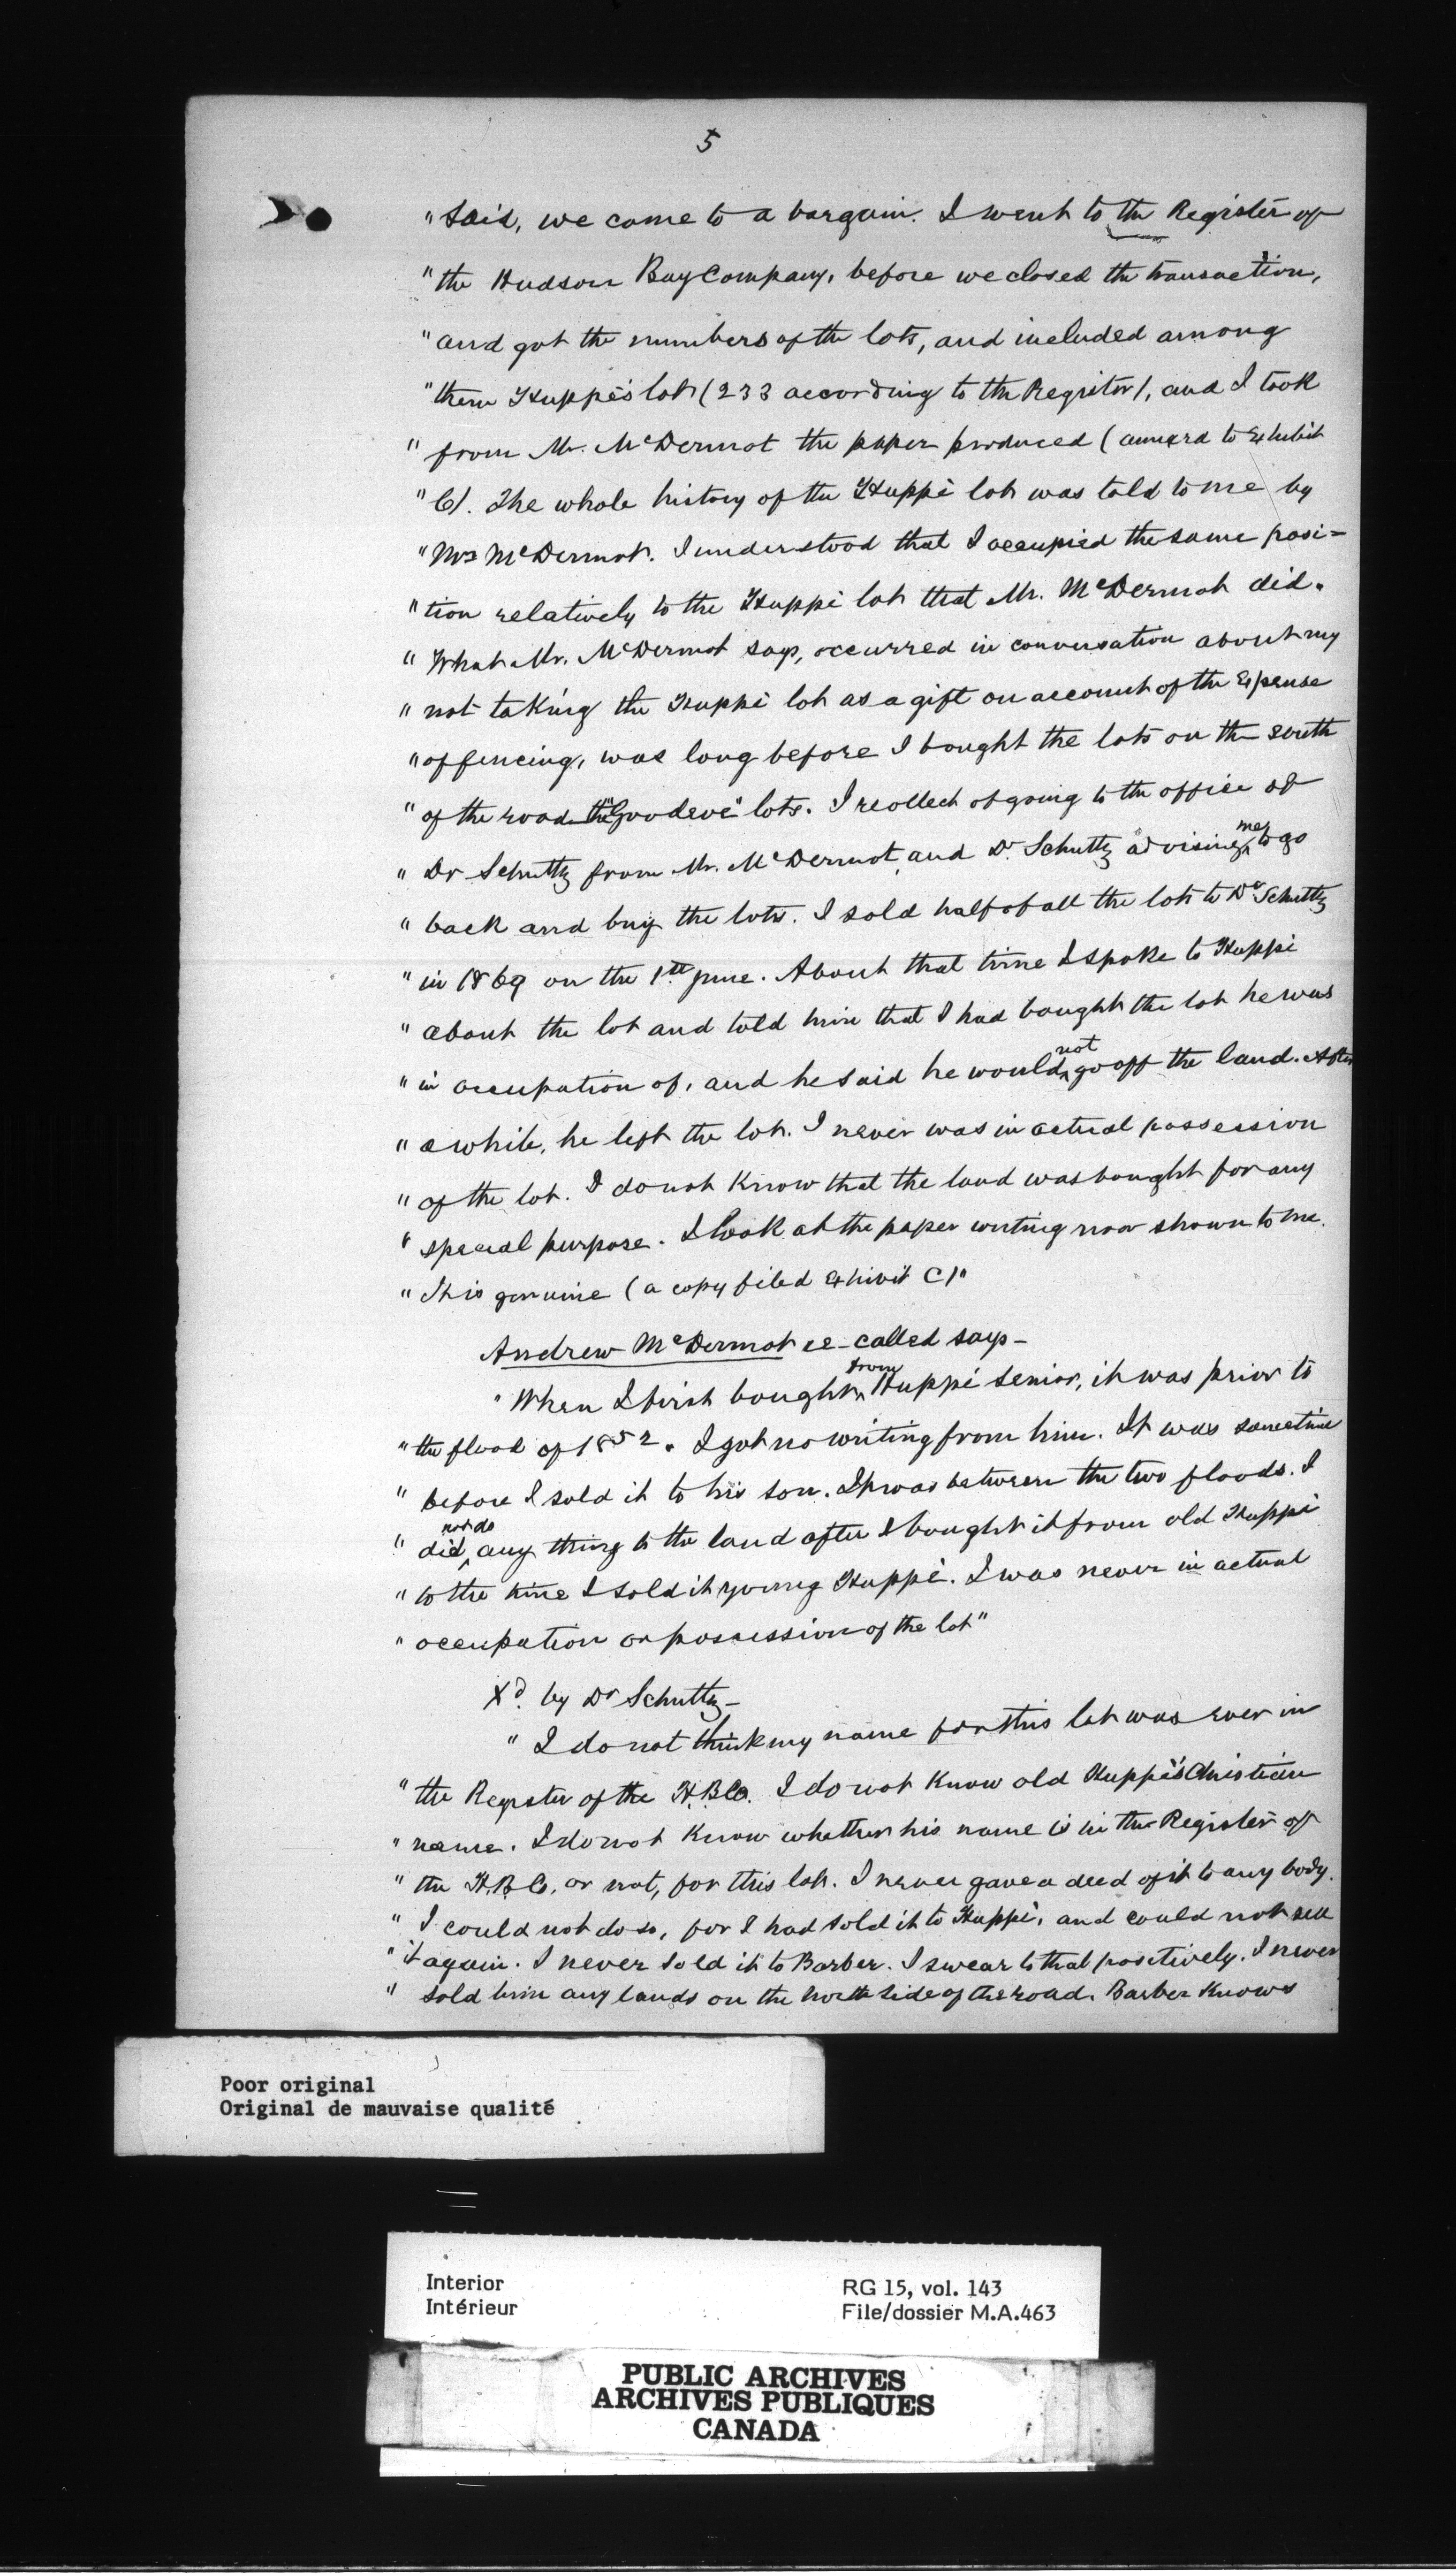 5
" said, we came to a bargain. I went to the Register of
" the Hudson Bay Company, before we closed the transaction,
" and got the numbers of the lots, and included among
" them Huppé's lot (233 according to the Register), and I took
" from Mr. McDermot the paper produced (annexed to Exhibit
" C). The whole history of the Huppé lot was told to me by
" Mr McDermot. I understood that I occupied the same posi=
" tion relatively to the Huppé lot that Mr. McDermot did.
" What Mr. McDermot says, occurred in conversation about my
" not taking the Huppé lot as a gift on account of the Expense
" of fencing, was long before I bought the lots on the south
" of the road the "Goodeve" lots. I recollect of going to the office of
" Dr Schultz from Mr. McDermot, and Dr. Schultz advising me to go
" back and buy the lots. I sold half of all the lots to Dr Schultz
" in 1869 on the 1st June. About that time I spoke to Huppé
" about the lot and told him that I had bought the lot he was
" in occupation of, and he said he would not go off the land. After
" a while, he left the lot. I never was in actual possession
" of the lot. I do not Know that the land was bought for any
" special purpose. I look at the paper writing now shown to me.
" It is genuine (a copy filed Exhibit C)"
Andrew McDermot re-called says-
" When I first bought from Huppé senior, it was prior to
" the flood of 1852. I got no writing from him. It was sometime
" before I sold it to his son. It was between the two floods. I
" did not do any thing to the land after I bought it from old Huppé
" to the time I sold it young Huppé. I was never in actual
" occupation or possession of the lot"
Xd. by Dr Schultz-
" I do not think my name for this lot was ever in
" the Register of the H.B.Co. I do not Know old Huppé's Christian
" name. I do not Know whether his name is in the Register of
" the H.B.Co. or not, for this lot. I never gave a deed of it to any body.
" I could not do so, for I had sold it to Huppé, and could not sell
" it again. I never sold it to Barber. I swear to that positively. I never
" sold him any lands on the north side of the road. Barber Knows
Poor original
Original de mauvaise qualité
Interior
Intérieur
RG 15, vol. 143
File/dossier M.A.463
PUBLIC ARCHIVES
ARCHIVES PUBLIQUES
CANADA